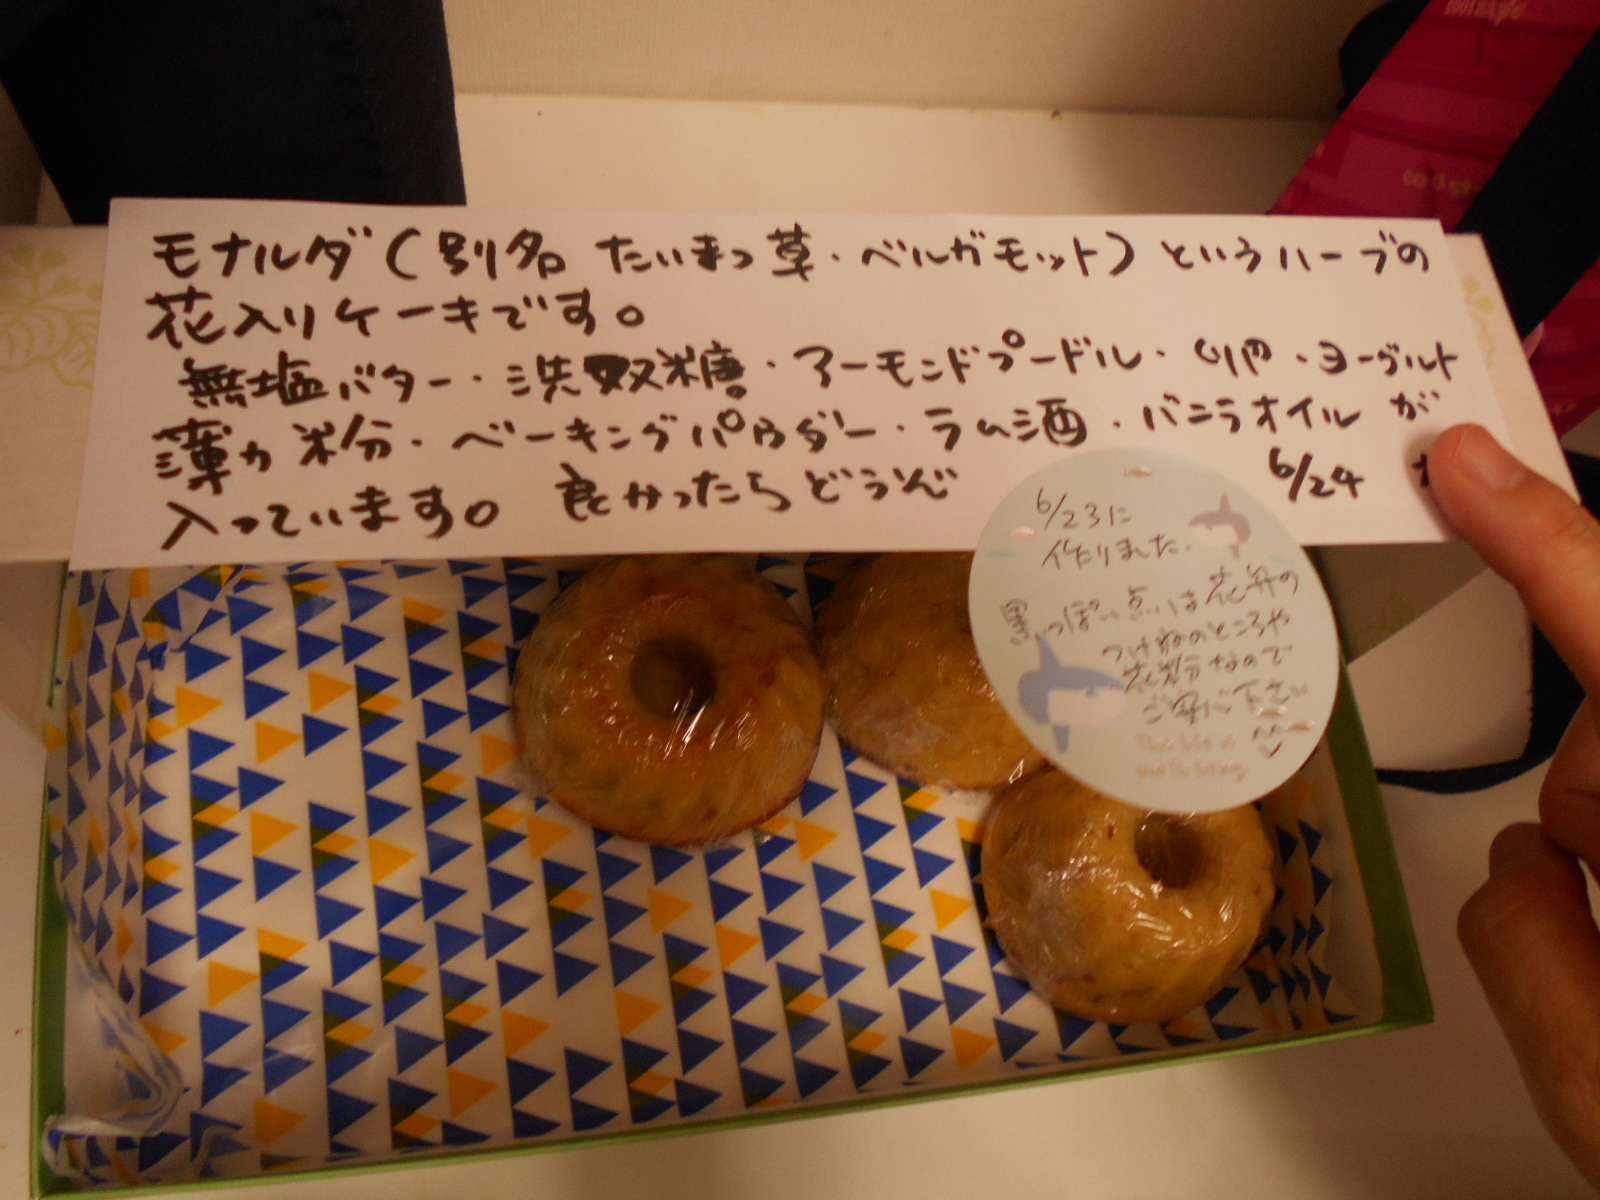 モナルダ(別名 たいまつ草・ベルガモット)というハーブの
花入りケーキです。
無塩バター・洗双糖・アーモンドプードル・卵・ヨーグルト
薄力粉・ベーキングパウダー・ラム酒・バニラオイルが
入っています。 良かったらどうぞ 6/24
6/23に
作りました.
黒っぽい点は花弁の
つけねのところや
花粉なので
ご安心下さい
The life is
worth living.
cool style